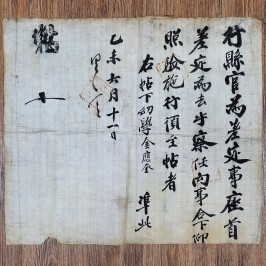 行縣官爲差定事座首
差定爲去乎察任向事合下仰
照驗施行須至帖者
右帖下幼學金應 準此
乙未六月十一日